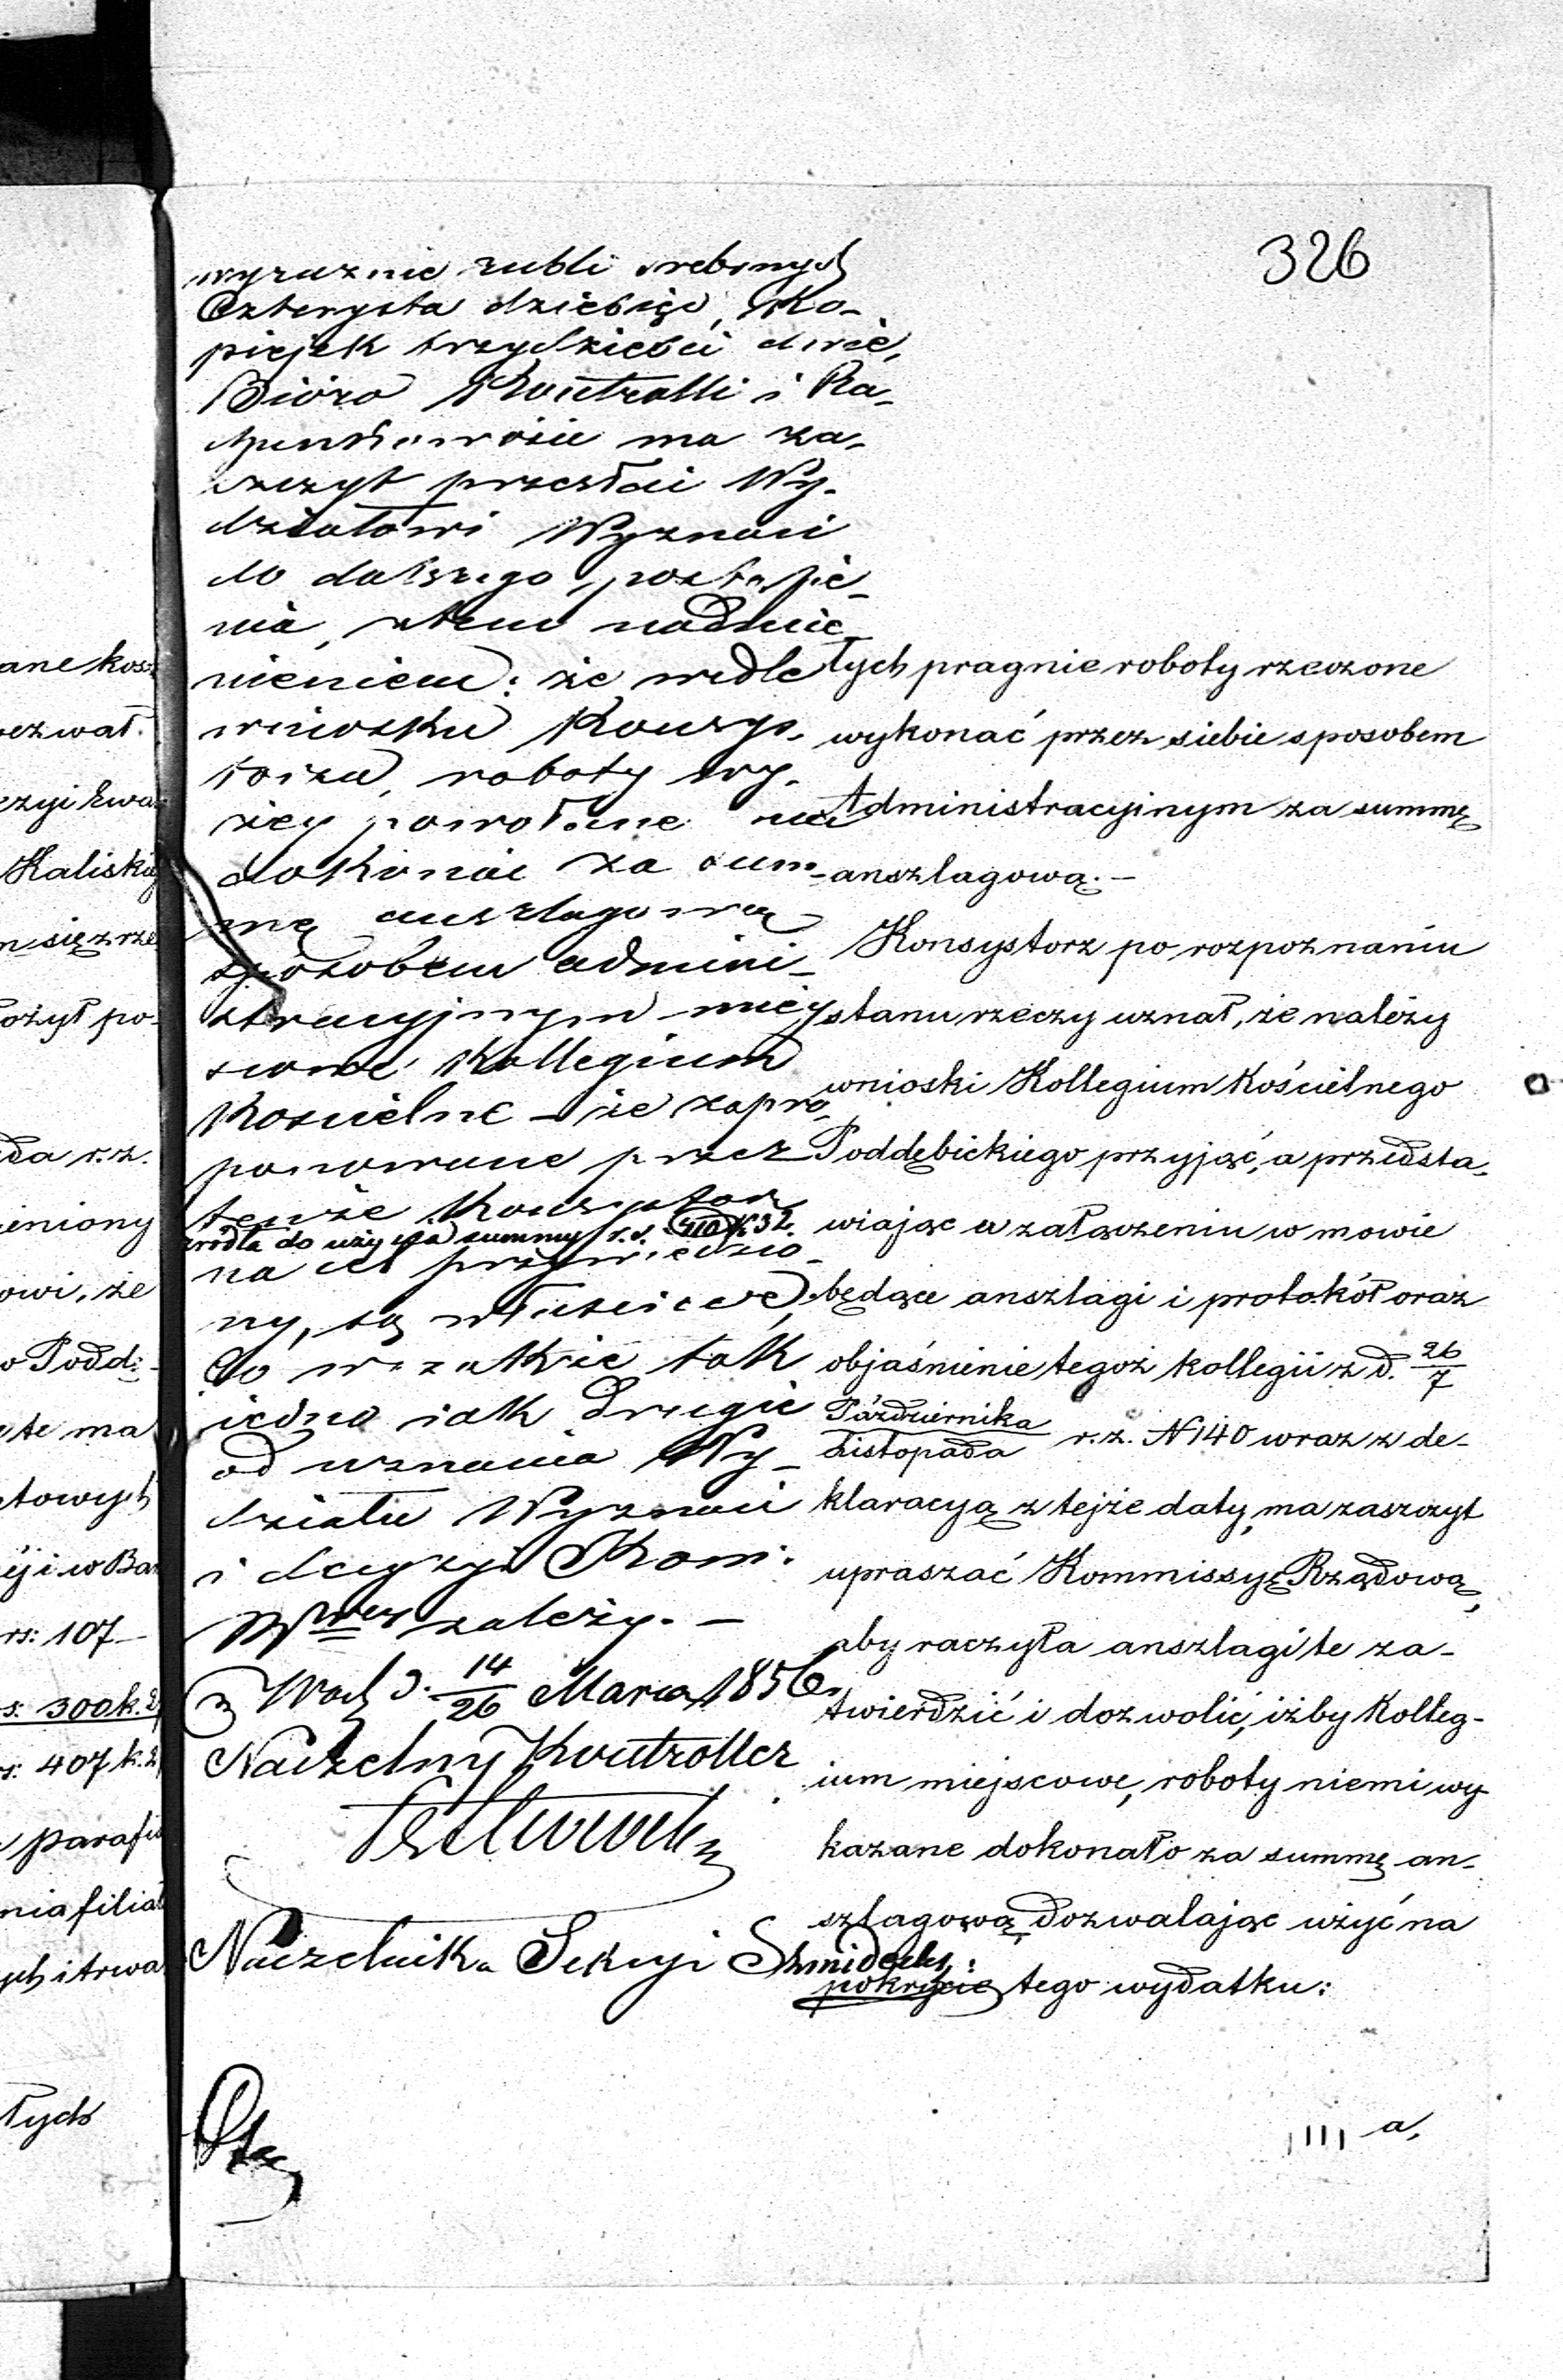 326
wyraznie rubli srebrnych
Czterysta dziesięć, Ko-
piejek trzydzieści dwie,
Bióro Kontrolli i Ra-
chunkowości ma za-
szczyt przesłać Wy-
działowi Wyznań
do dalszego postąpie-
nia, z tem nadmie-
nieniem: że wedle
wniosku Konsys-
torza, roboty wy-
żey powołane ma
dokonać za sum-
mę anszlagową
sposobem admini-
stracyjnym miey-
scowe Kollegium
Kościelne – że zapro-
ponowane przez
tenże Konsystorz
źródła do użycia summy r.s. 410 k 32.
na cel przywiedzio-
ny, są właściwe,
Co wszakże tak
iedno iak drugie
od uznania Wy-
działu Wyznań
i decyzyi Kom:
zależy. –
W d. 14/26 Marca 1856.
Naczelny Kontroller
Naczelnik Sekcyi Szmidecki
tych pragnie roboty rzeczone
wykonać przez siebie sposobem
Administracyjnym za summę
anszlagową. –
Konsystorz po rozpoznaniu
stanu rzeczy uznał, że należy
wnioski Kollegium Kościelnego
Poddębickiego przyjąć, a przedsta-
wiając w załączeniu w mowie
będące anszlagi i protokół oraz
objaśnienie tegoż kollegii z d. 26/7
Października/Listopada r.z. N 140 wraz z de-
klaracyą z tejże daty, ma zaszczyt
upraszać Kommissyę Rządową,
aby raczyła anszlagi te za-
twierdzić i dozwolić, iżby Kolleg-
ium miejscowe, roboty niemi wy-
kazane dokonało za summę an-
szlagową, dozwalając użyć na
pokrycie tego wydatku:
a,